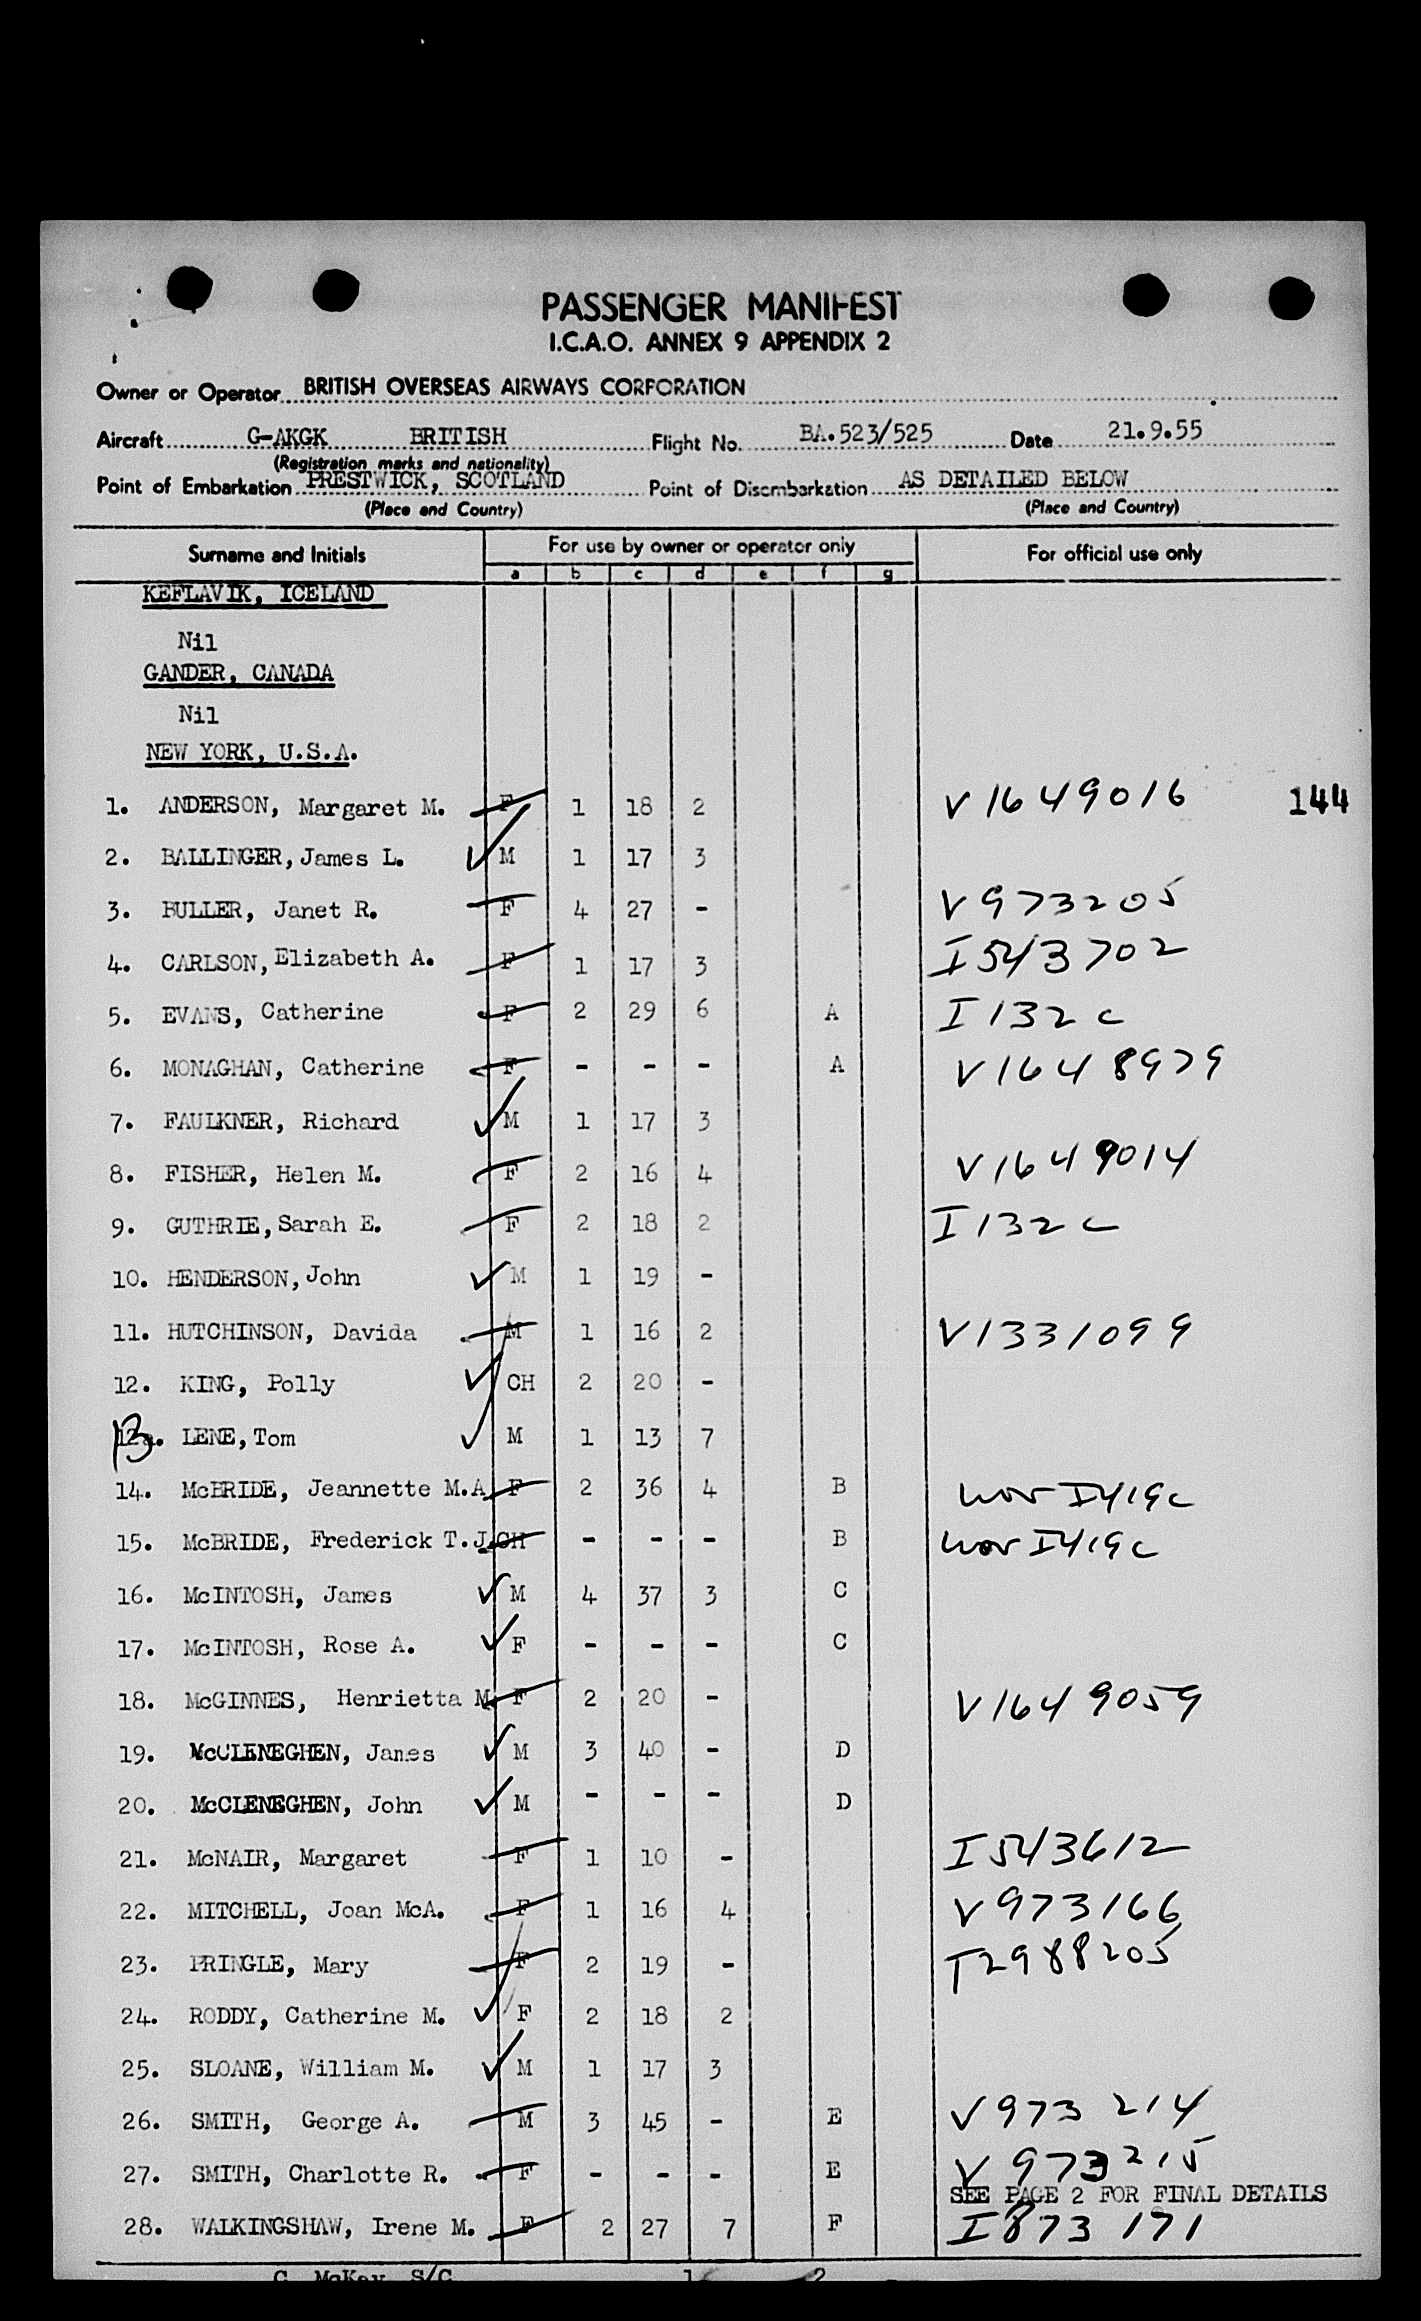 PASSENGER MANIFEST
I.C.A.O. ANNEX 9 APPENDIX 2
Owner or Operator BRITISH OVERSEAS AIRWAYS CORPORATION
Aircraft G-AKGK BRITISH Flight No. BA.523/525 Date 21.9.55
(Registration marks and nationality)
Point of Embarkation PRESTWICK, SCOTLAND Point of Disembarkation AS DETAILED BELOW
(Place and Country) (Place and Country)
Surname and Initials For use by owner or operator only For official use only
a b c d e f g
KEFLAVIK, ICELAND
Nil
GANDER, CANADA
Nil
NEW YORK, U.S.A.
1. ANDERSON, Margaret M. F 1 18 2 V1649016 144
2. BALLINGER, James L. M 1 17 3
3. BULLER, Janet R. F 4 27 - V973205
4. CARLSON, Elizabeth A. F 1 17 3 I543702
5. EVANS, Catherine F 2 29 6 A I132c
6. MONAGHAN, Catherine F - - - A V1648979
7. FAULKNER, Richard M 1 17 3
8. FISHER, Helen M. F 2 16 4 V1649014
9. GUTHRIE, Sarah E. F 2 18 2 I132c
10. HENDERSON, John M 1 19 -
11. HUTCHINSON, Davida M 1 16 2 V1331099
12. KING, Polly CH 2 20 -
13 12a. LENE, Tom M 1 13 7
14. McBRIDE, Jeannette M.A F 2 36 4 B I419c
15. McBRIDE, Frederick T.J. CH - - - B I419c
16. McINTOSH, James M 4 37 3 C
17. McINTOSH, Rose A. F - - - C
18. McGINNES, Henrietta M. F 2 20 - V1649059
19. McCLENEGHEN, James M 3 40 - D
20. McCLENEGHEN, John M - - - D
21. McNAIR, Margaret F 1 10 - I543612
22. MITCHELL, Joan McA. F 1 16 4 V973166
23. PRINGLE, Mary F 2 19 - T2988205
24. RODDY, Catherine M. F 2 18 2
25. SLOANE, William M. M 1 17 3
26. SMITH, George A. M 3 45 - E V973214
27. SMITH, Charlotte R. F - - - E V973215
SEE PAGE 2 FOR FINAL DETAILS
28. WALKINGSHAW, Irene M. F 2 27 7 F I873171
C. McKay S/C